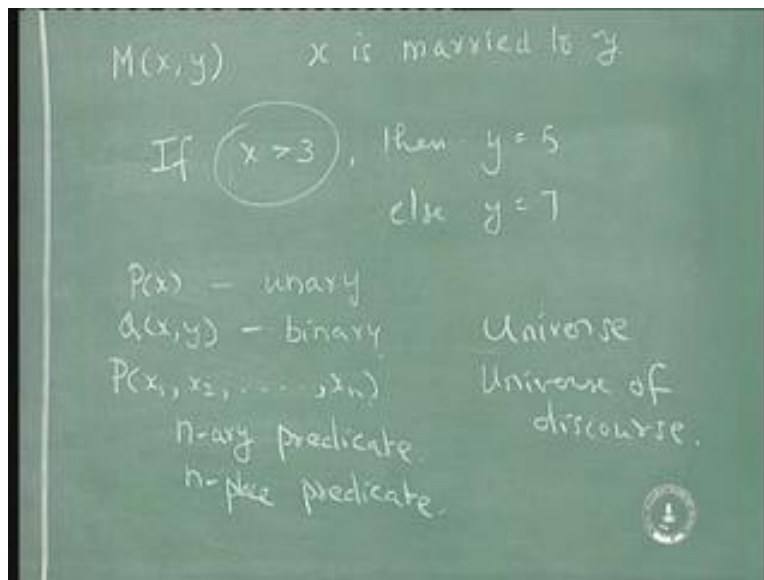 M(x,y) x is married to y
If x > 3, then y = 5
else y = 7
P(x) - unary
Q(x,y) - binary
P(x1, x2, ....., xn)
n-ary predicate.
n-place predicate.
Universe
Universe of
discourse.